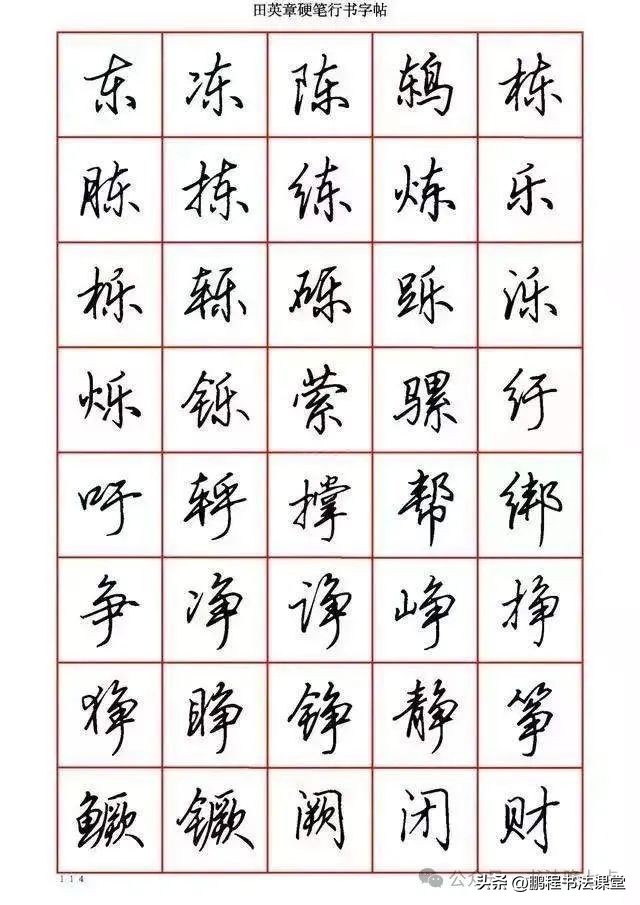 田英章硬笔行书字帖
东 冻 陈 鸫 栋
胨 拣 练 炼 乐
栎 轹 砾 跞 泺
烁 铄 萦 骡 纡
吁 轷 撑 帮 绑
争 净 诤 峥 挣
狰 睁 铮 静 筝
鳜 镢 阙 闭 财
114
头条 @鹏程书法课堂